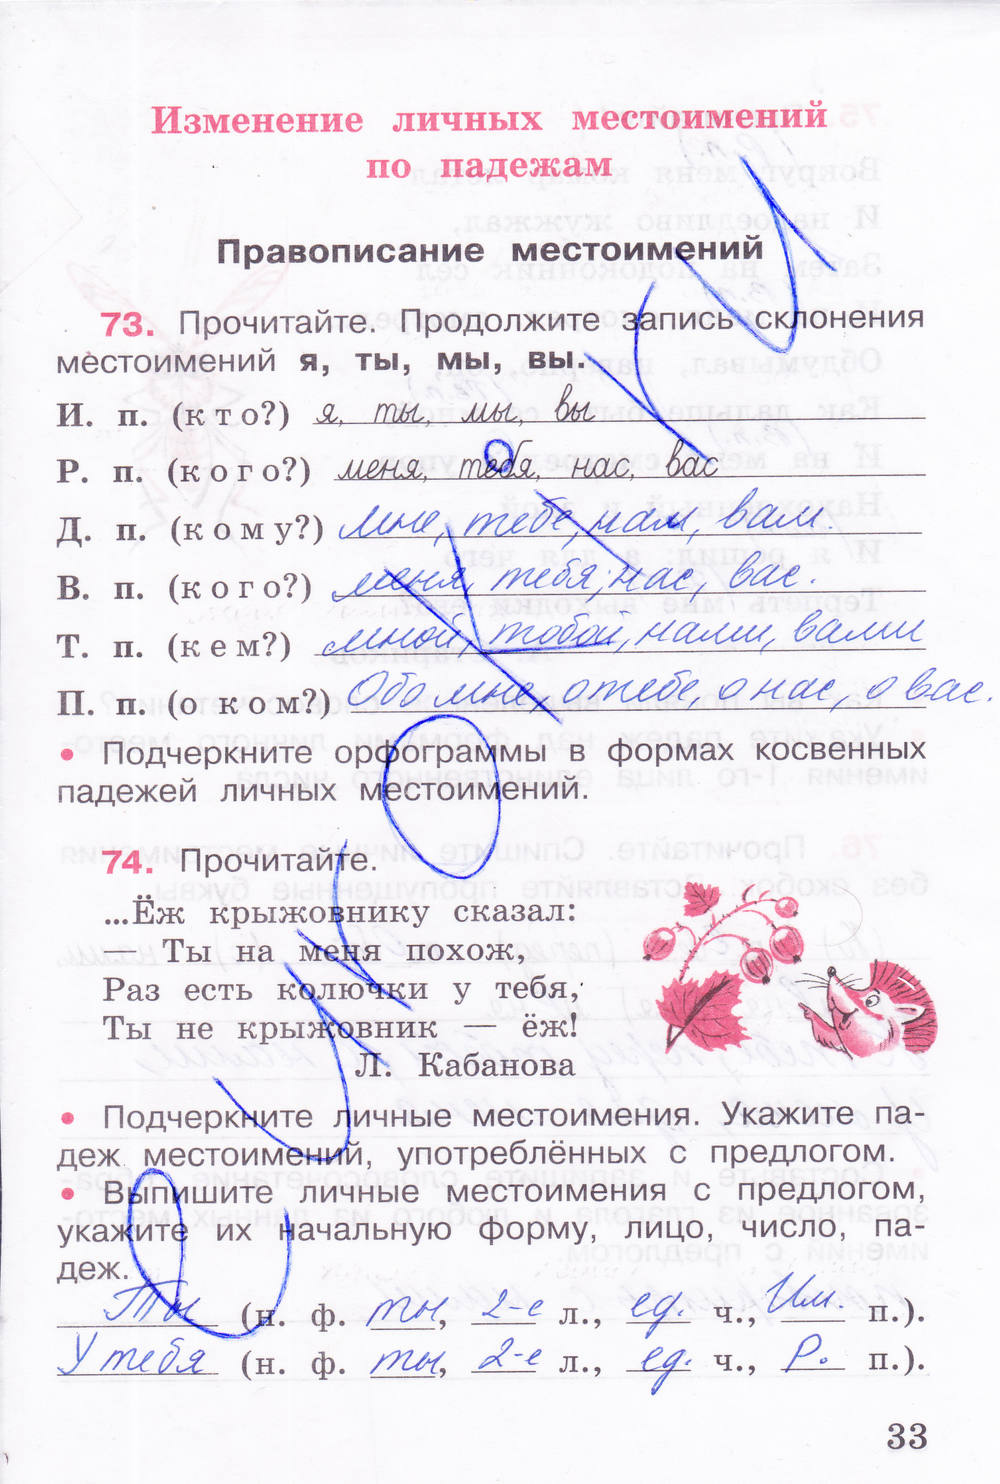 Изменение личных местоимений
по падежам
Правописание местоимений
73. Прочитайте. Продолжите запись склонения
местоимений я, ты, мы, вы.
И. п. (кто?) я, ты, мы, вы
Р. п. (кого?) меня, тебя, нас, вас
Д. п. (кому?) Мне, тебе, нам, вам.
В. п. (кого?) меня, тебя, нас, вас.
Т. п. (кем?) мной, тобой, нами, вами
П. п. (о ком?) Обо мне, о тебе, о нас, о вас.
• Подчеркните орфограммы в формах косвенных
падежей личных местоимений.
74. Прочитайте.
...Ёж крыжовнику сказал:
— Ты на меня похож,
Раз есть колючки у тебя,
Ты не крыжовник — ёж!
Л. Кабанова
• Подчеркните личные местоимения. Укажите па-
деж местоимений, употреблённых с предлогом.
• Выпишите личные местоимения с предлогом,
укажите их начальную форму, лицо, число, па-
деж.
Ты (н. ф. ты, 2-е л., ед. ч., Им. п.).
У тебя (н. ф. ты, 2-е л., ед. ч., Р. п.).
33